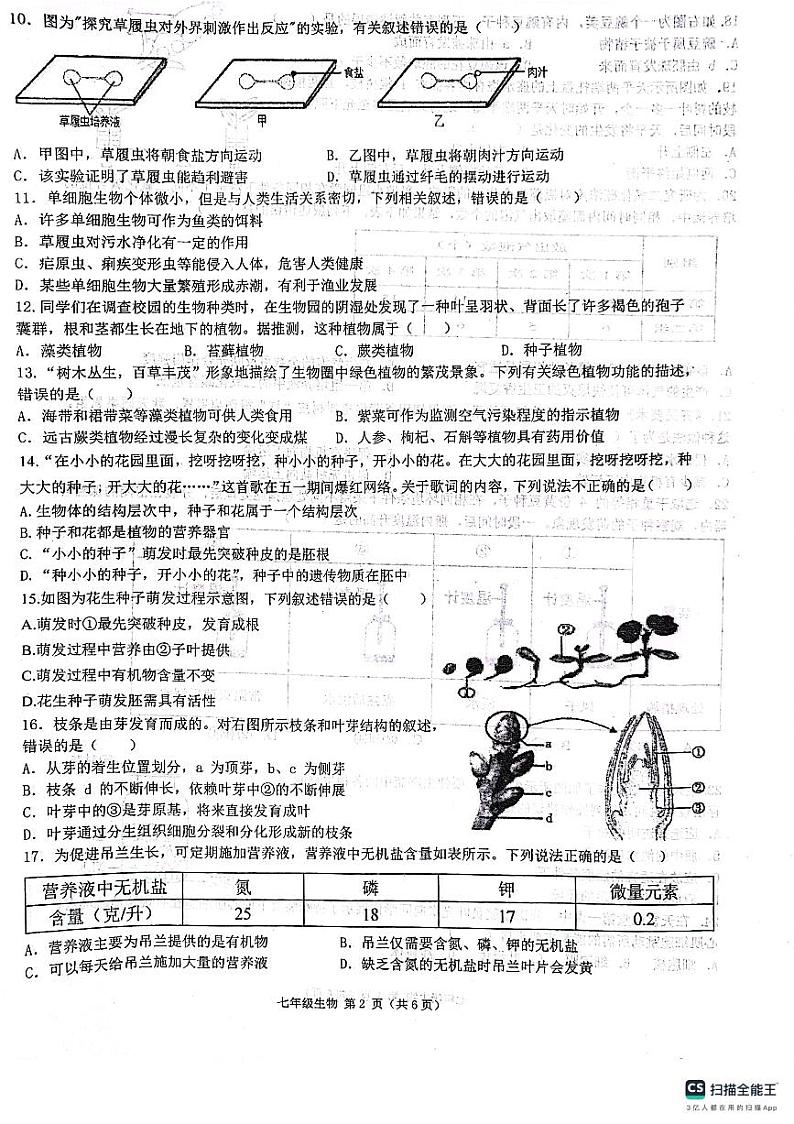 10. 图为"探究草履虫对外界刺激作出反应"的实验，有关叙述错误的是（ ）
食盐
肉汁
草履虫培养液
甲
乙
A．甲图中，草履虫将朝食盐方向运动 B．乙图中，草履虫将朝肉汁方向运动
C．该实验证明了草履虫能趋利避害 D．草履虫通过纤毛的摆动进行运动
11．单细胞生物个体微小，但是与人类生活关系密切，下列相关叙述，错误的是（ ）
A．许多单细胞生物可作为鱼类的饵料
B．草履虫对污水净化有一定的作用
C．疟原虫、痢疾变形虫等能侵入人体，危害人类健康
D．某些单细胞生物大量繁殖形成赤潮，有利于渔业发展
12.同学们在调查校园的生物种类时，在生物园的阴湿处发现了一种叶呈羽状、背面长了许多褐色的孢子
囊群，根和茎都生长在地下的植物。据推测，这种植物属于（ ）
A．藻类植物 B．苔藓植物 C．蕨类植物 D．种子植物
13．“树木丛生，百草丰茂”形象地描绘了生物圈中绿色植物的繁茂景象。下列有关绿色植物功能的描述，
错误的是（ ）
A．海带和裙带菜等藻类植物可供人类食用 B．紫菜可作为监测空气污染程度的指示植物
C．远古蕨类植物经过漫长复杂的变化变成煤 D．人参、枸杞、石斛等植物具有药用价值
14.“在小小的花园里面，挖呀挖呀挖，种小小的种子，开小小的花。在大大的花园里面，挖呀挖呀挖，种
大大的种子；开大大的花……”这首歌在五一期间爆红网络。关于歌词的内容，下列说法不正确的是（ ）
A.生物体的结构层次中，种子和花属于一个结构层次
B.种子和花都是植物的营养器官
C.“小小的种子”萌发时最先突破种皮的是胚根
D.“种小小的种子，开小小的花”，种子中的遗传物质在胚中
15.如图为花生种子萌发过程示意图，下列叙述错误的是（ ）
A.萌发时①最先突破种皮，发育成根
B.萌发过程中营养由②子叶提供
C.萌发过程中有机物含量不变
D.花生种子萌发胚需具有活性
②
①
16．枝条是由芽发育而成的。对右图所示枝条和叶芽结构的叙述，
错误的是（ ）
A．从芽的着生位置划分，a 为顶芽，b、c 为侧芽
B．枝条 d 的不断伸长，依赖叶芽中②的不断伸展
C．叶芽中的③是芽原基，将来直接发育成叶
D．叶芽通过分生组织细胞分裂和分化形成新的枝条
a
b
c
d
①
②
③
17．为促进吊兰生长，可定期施加营养液，营养液中无机盐含量如表所示。下列说法正确的是（ ）
营养液中无机盐 氮 磷 钾 微量元素
含量（克/升） 25 18 17 0.2
A．营养液主要为吊兰提供的是有机物 B．吊兰仅需要含氮、磷、钾的无机盐
C．可以每天给吊兰施加大量的营养液 D．缺乏含氮的无机盐时吊兰叶片会发黄
七年级生物 第 2 页（共 6 页）
CS 扫描全能王
3亿人都在用的扫描App